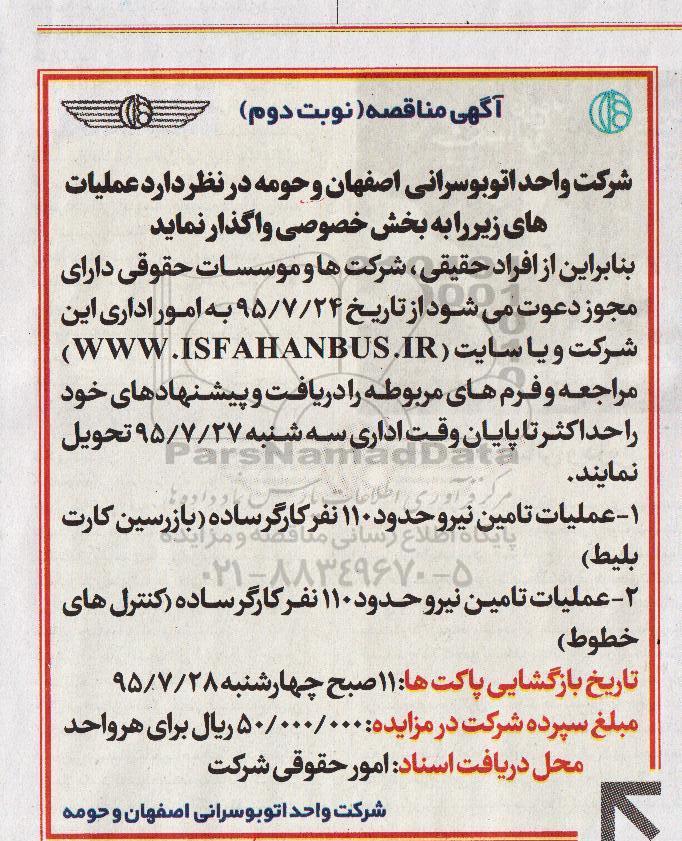 آگهی مناقصه(نوبت دوم)
شرکت واحد اتوبوسرانی اصفهان و حومه در نظر دارد عملیات
های زیر را به بخش خصوصی واگذار نماید
بنابراین از افراد حقیقی، شرکت ها و موسسات حقوقی دارای
مجوز دعوت می شود از تاریخ ۹۵/۷/۲۴ به امور اداری این
شرکت و یا سایت (WWW.ISFAHANBUS.IR)
مراجعه و فرم های مربوطه را دریافت و پیشنهادهای خود
را حداکثر تا پایان وقت اداری سه شنبه ۹۵/۷/۲۷ تحویل
نمایند.
ParsNamadData
۱-عملیات تامین نیرو حدود ۱۱۰ نفر کارگر ساده (بازرسین کارت
پایگاه اطلاع رسانی مناقصه و مزایده
بلیط)
۰۲۱-۸۸۳۴۹۶۷۰-۵
۲-عملیات تامین نیرو حدود ۱۱۰ نفر کارگر ساده (کنترل های
خطوط)
تاریخ بازگشایی پاکت ها: ۱۱ صبح چهارشنبه ۹۵/۷/۲۸
مبلغ سپرده شرکت در مزایده: ۵۰/۰۰۰/۰۰۰ ریال برای هر واحد
محل دریافت اسناد: امور حقوقی شرکت
شرکت واحد اتوبوسرانی اصفهان و حومه